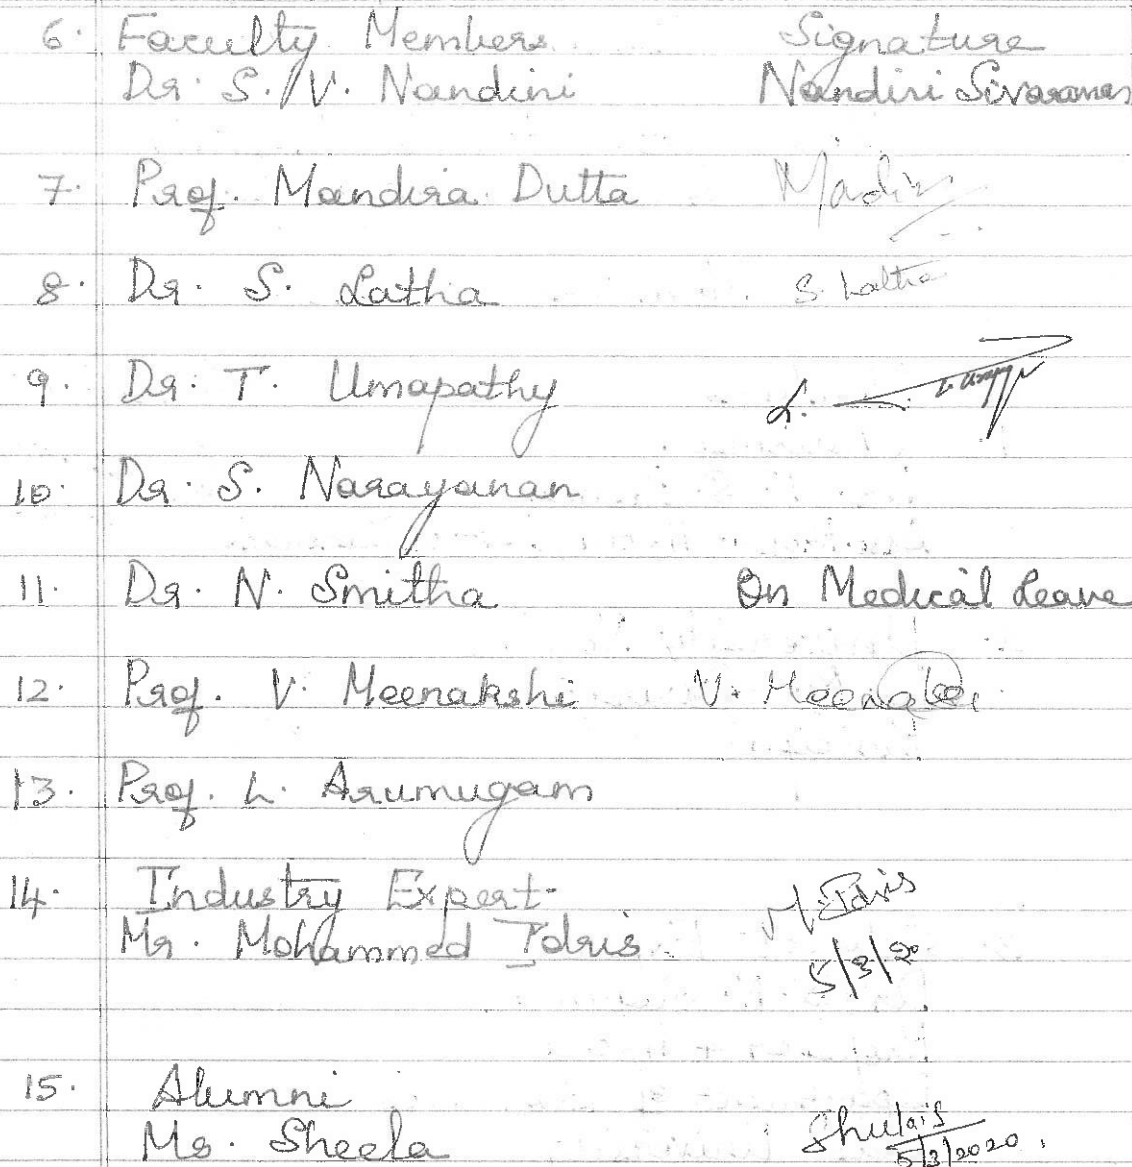 6. Faculty Members Signature
Dr. S. V. Nandini Nandini Sivaraman
7. Prof. Mandira Dutta
8. Dr. S. Latha S. Latha
9. Dr. T. Umapathy
10. Dr. S. Narayanan
11. Dr. N. Smitha On Medical Leave
12. Prof. V. Meenakshi V. Meenakshi
13. Prof. L. Arumugam
14. Industry Expert- M. Idris
Mr. Mohammed Idris 5/3/20
15. Alumni
Ms. Sheela
5/3/2020